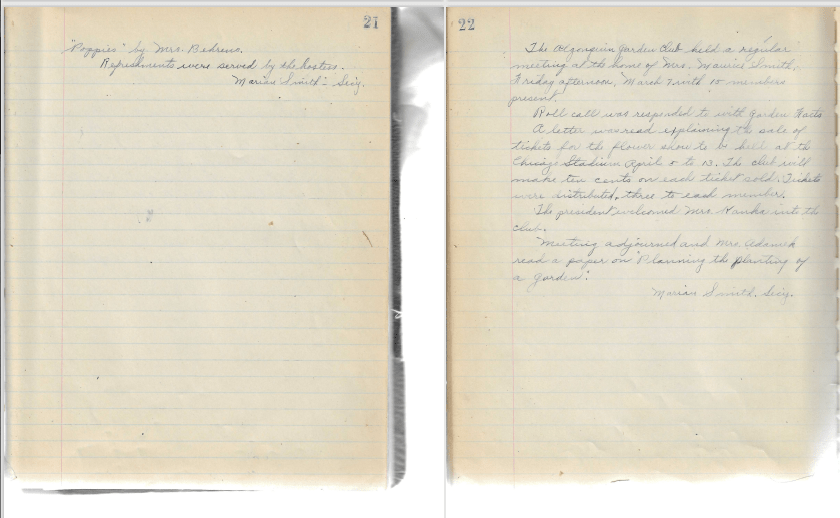 21
"Poppies" by Mrs. Behrens.
Refreshments were served by the hostess.
Marian Smith - Secy.
22
The Algonquin Garden Club held a regular
meeting at the home of Mrs. Maurice Smith,
Friday afternoon, March 7 with 15 members
present.
Roll call was responded to with Garden Facts
A letter was read explaining the sale of
tickets for the flower show to be held at the
Chicago Stadium April 5 to 13. The club will
make ten cents on each ticket sold. Tickets
were distributed, three to each member.
The president welcomed Mrs. Hanka into the
club.
Meeting adjourned and Mrs. Adamek
read a paper on "Planning the planting of
a garden".
Marian Smith, Secy.